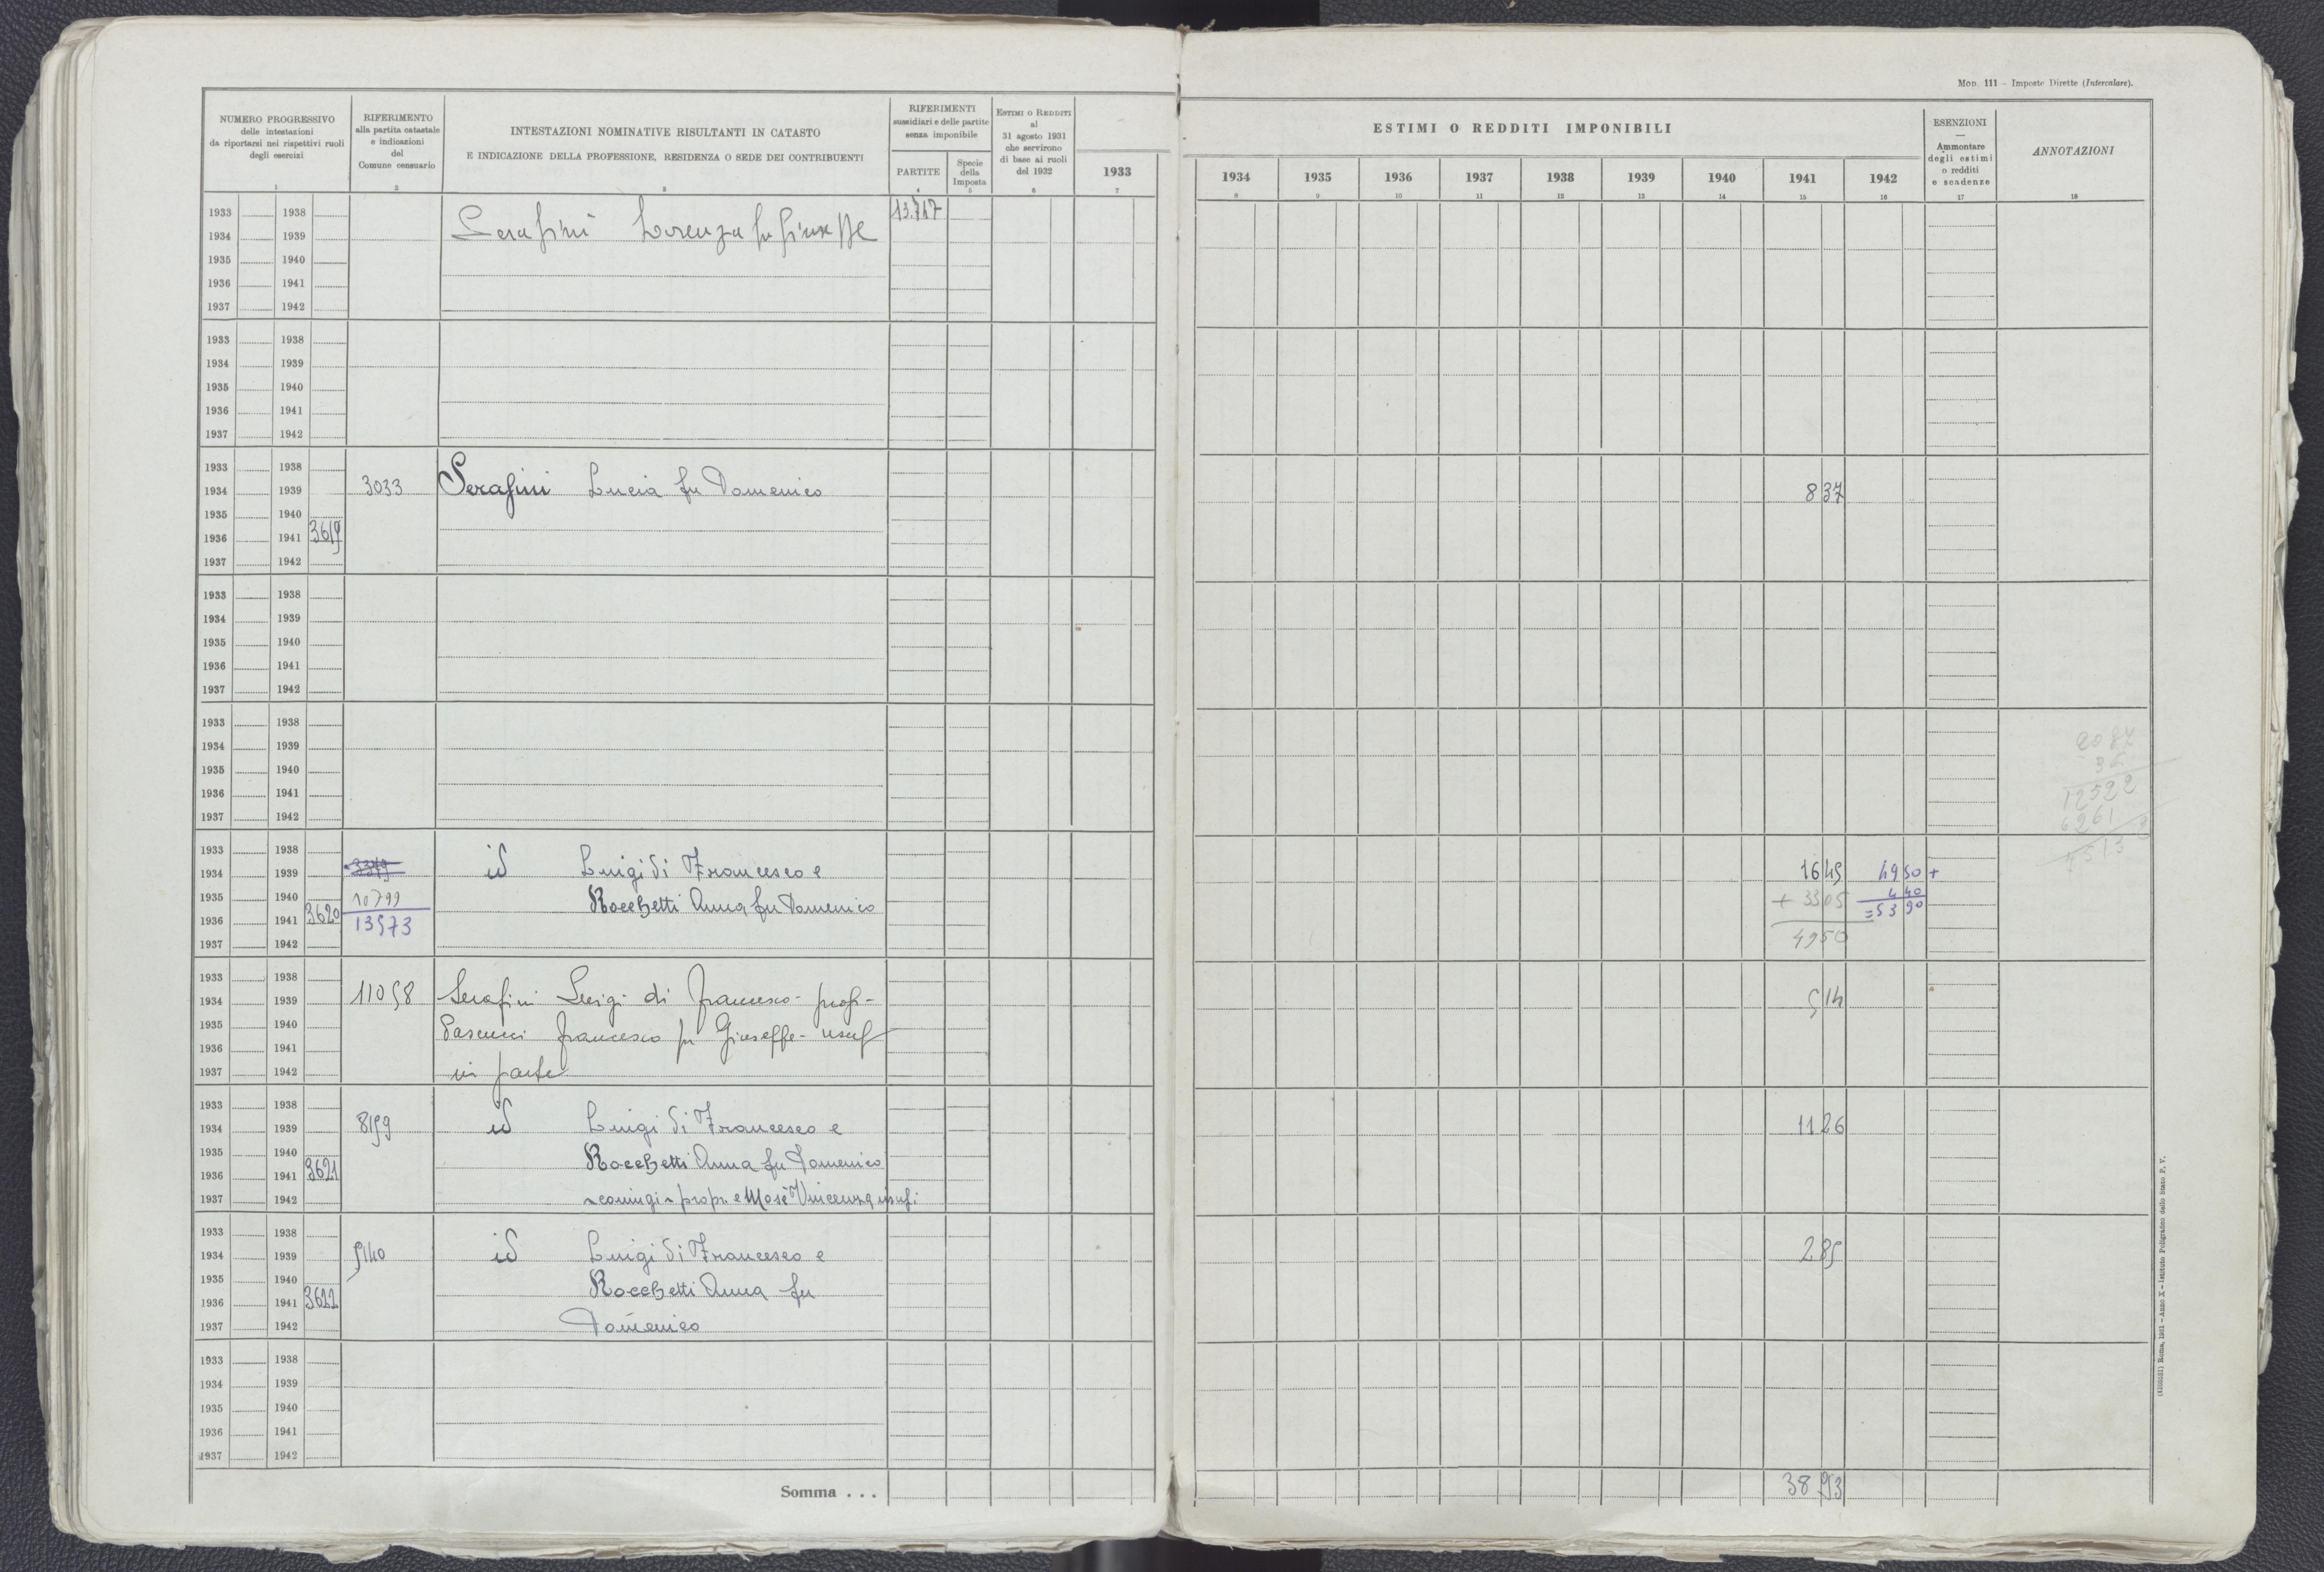 Mod. 111 - Imposte Dirette (Intercalare).
NUMERO PROGRESSIVO
delle intestazioni
da riportarsi nei rispettivi ruoli
degli esercizi
1
RIFERIMENTO
alla partita catastale
e indicazioni
del
Comune censuario
2
INTESTAZIONI NOMINATIVE RISULTANTI IN CATASTO
E INDICAZIONE DELLA PROFESSIONE, RESIDENZA O SEDE DEI CONTRIBUENTI
3
RIFERIMENTI
sussidiari e delle partite
senza imponibile
PARTITE
4
Specie
della
Imposta
5
ESTIMI O REDDITI
al
31 agosto 1931
che servirono
di base ai ruoli
del 1932
6
1933
7
ESTIMI O REDDITI IMPONIBILI
1934 1935 1936 1937 1938 1939 1940 1941 1942
8 9 10 11 12 13 14 15 16
ESENZIONI
—
Ammontare
degli estimi
o redditi
e scadenze
17
ANNOTAZIONI
18
1933 1938 Serafini Lorenza fu Giuseppe 13.717
1934 1939
1935 1940
1936 1941
1937 1942
1933 1938
1934 1939
1935 1940
1936 1941
1937 1942
1933 1938
1934 1939 3033 Serafini Lucia fu Domenico 837
1935 1940
1936 1941 3619
1937 1942
1933 1938
1934 1939
1935 1940
1936 1941
1937 1942
1933 1938
1934 1939
1935 1940
1936 1941
1937 1942
12522
6261
1933 1938
1934 1939 id Luigi di Francesco e 1645 4950 +
1935 1940 10799 Rocchetti Anna fu Domenico + 3305 440
1936 1941 3620 13573 =5390
1937 1942 4950
1933 1938
1934 1939 11058 Serafini Luigi di Francesco - prop - 514
1935 1940 Pascucci Francesco fu Giuseppe - usuf
1936 1941
1937 1942 in parte
1933 1938
1934 1939 8159 id Luigi di Francesco e 1126
1935 1940 Rocchetti Anna fu Domenico
1936 1941 3621
1937 1942 - coniugi - propr. e Mosè Vincenza usuf:
1933 1938
1934 1939 5140 id Luigi di Francesco e 285
1935 1940 Rocchetti Anna fu
1936 1941 3622
1937 1942 Domenico
1933 1938
1934 1939
1935 1940
1936 1941
1937 1942
Somma . . . 3893
Roma, 1931 - Anno X - Istituto Poligrafico dello Stato P. V.